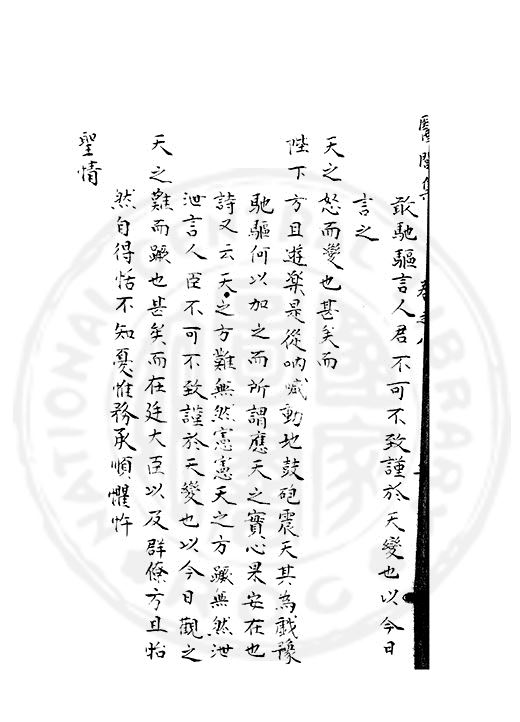 敢馳驅言人君不可不致謹於天變也以今日
言之
天之怒而變也甚矣而
陛下方且遊樂是從吶喊動地鼓砲震天其為戲豫
馳驅何以加之而所謂應天之實心果安在也
詩又云天之方難無然憲憲天之方蹶無然泄
泄言人臣不可不致謹於天變也以今日觀之
天之難而蹶也甚矣而在廷大臣以及群僚方且怡
然自得恬不知憂惟務承順懼忤
聖情